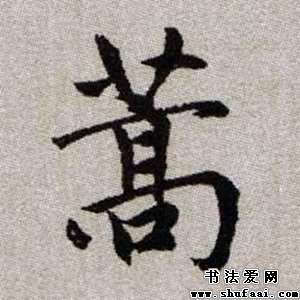 蒿
书法爱网
www.shufaai.com